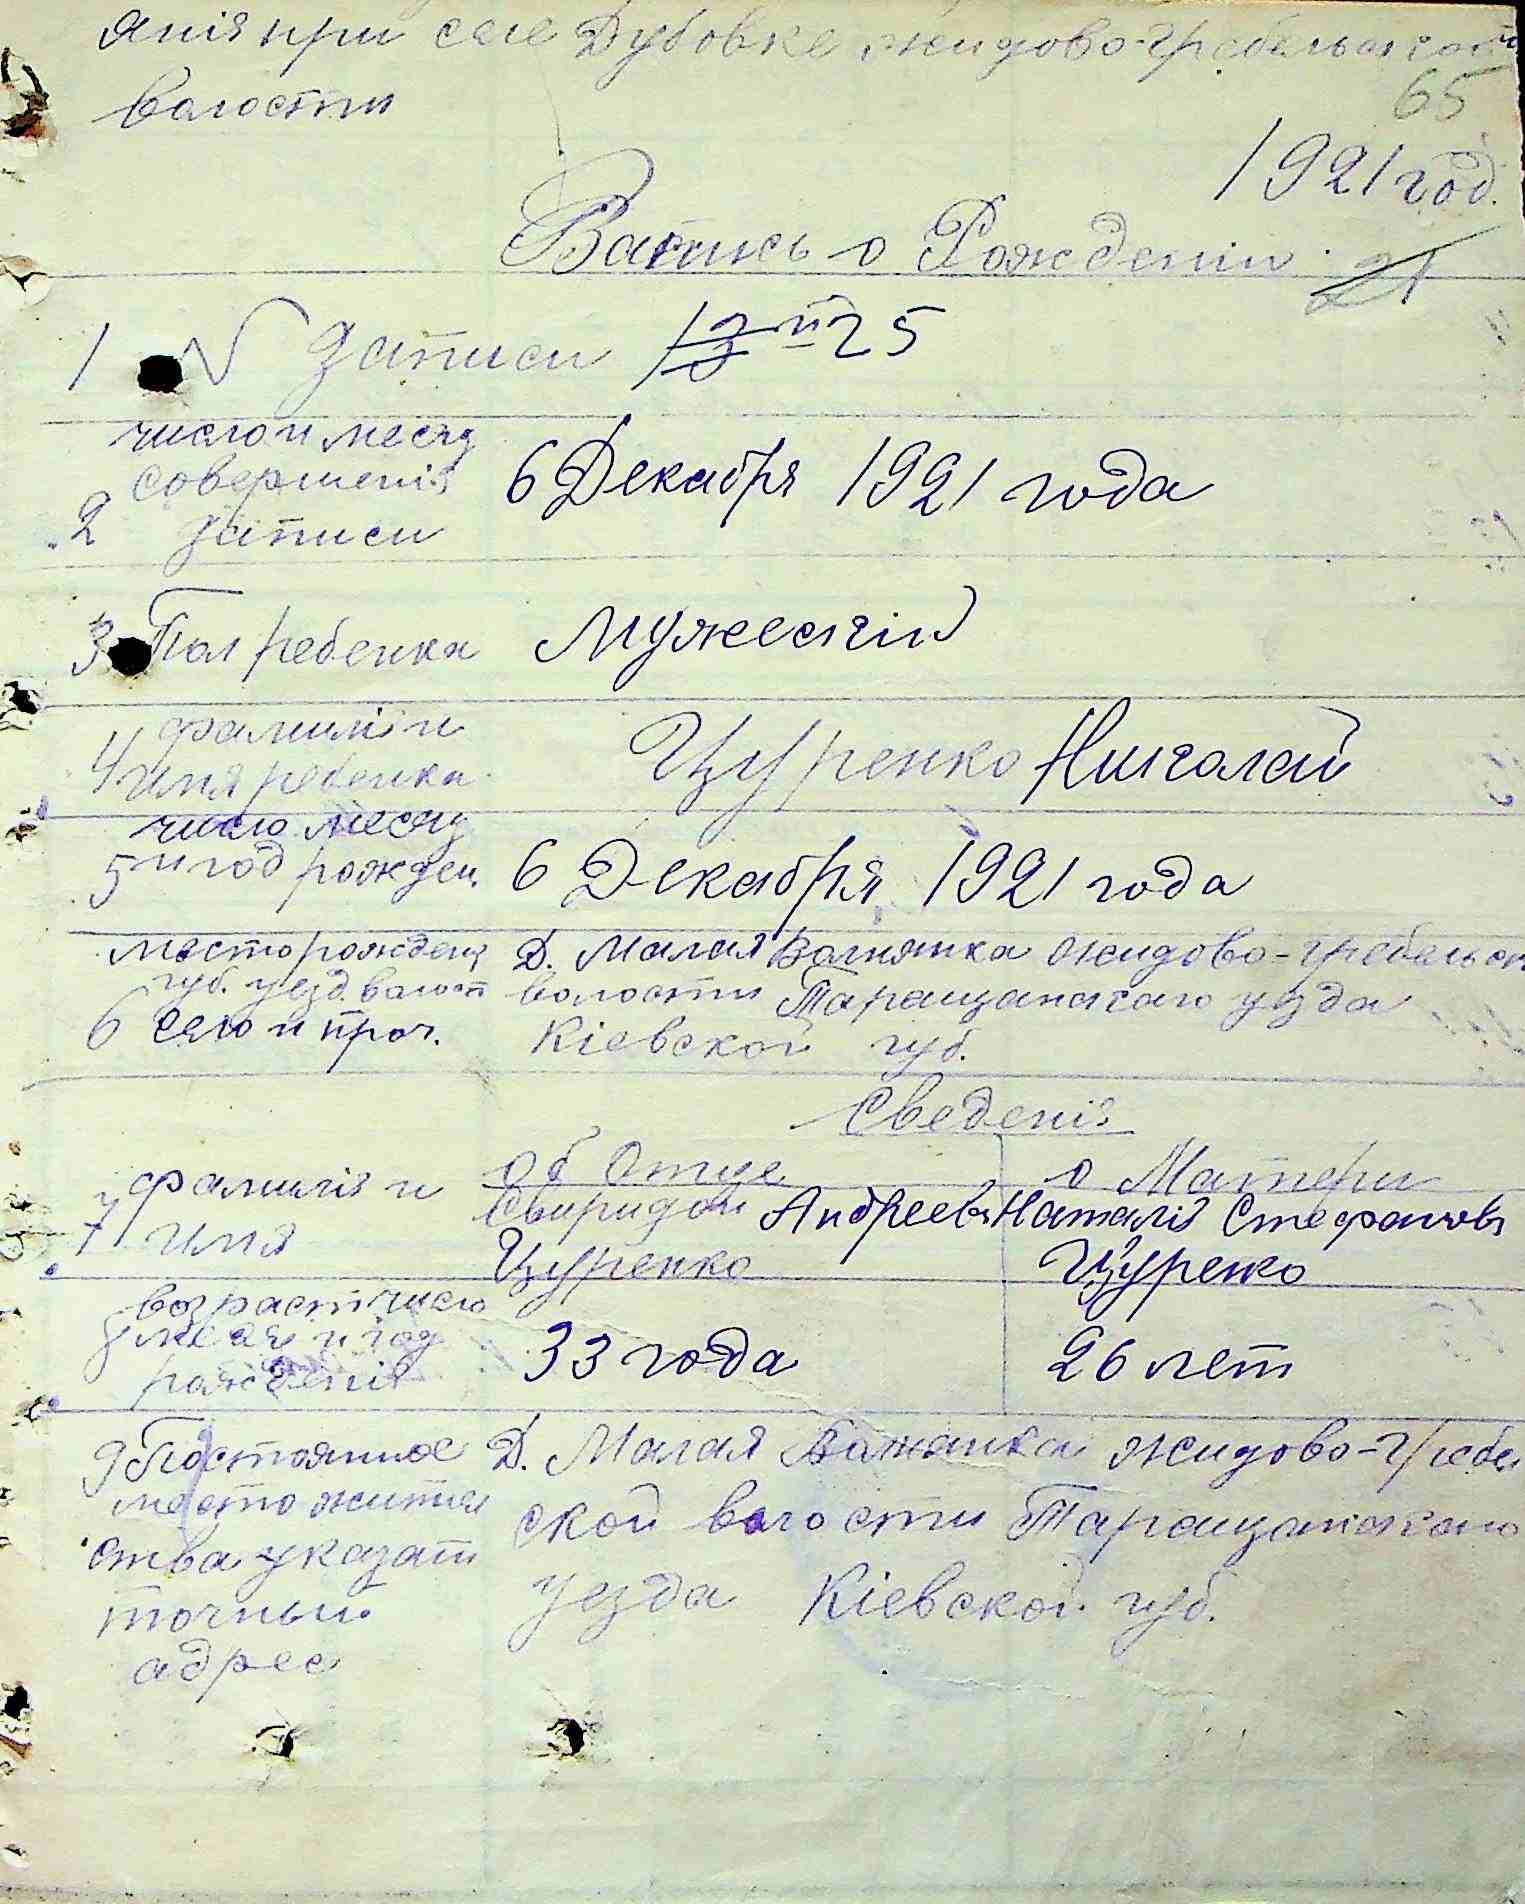 янія при селе Дубовке жидово-гребельской
волости
65
1921 год.
Запись о Рожденіи 21
1 № записи 13 25
число и месяц
совершенія
2 записи
6 Декабря 1921 года
3 Пол ребенка Мужескій
фамилія и
4 имя ребенка
Цуренко Николай
число месяц
5 и год рожден.
6 Декабря 1921 года
место рожденя
губ. уезд. волост
6 село и проч.
Д. Малая Волнянка жидово-гребельск
волости Таращанскаго уезда
Кіевской губ.
Сведенія
об Отце
о Матери
фамилія и
7 имя
Свиридон Андреев
Цуренко
Наталія Стефанов
Цуренко
возраст число
8 месяц и год
рожденія
33 года
26 лет
9 Постоянное
место житель
ства указат
точный
адрес
Д. Малая Волнянка жидово-гребел
ской волости Таращанскаго
уезда Кіевской губ.